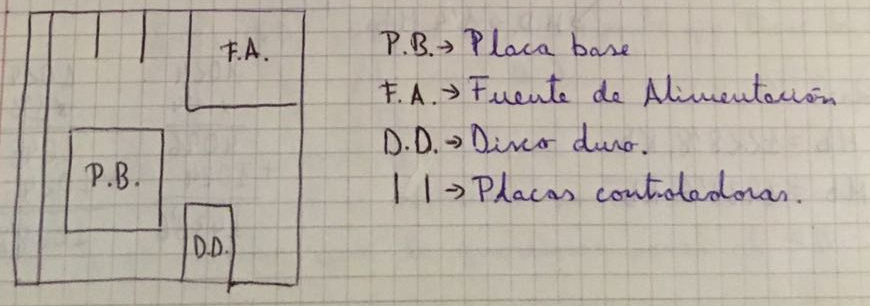 F.A.
P.B.
D.D.
P.B.→ Placa base
F.A.→ Fuente de Alimentación
D.D.→ Disco duro.
| |→ Placas controladoras.